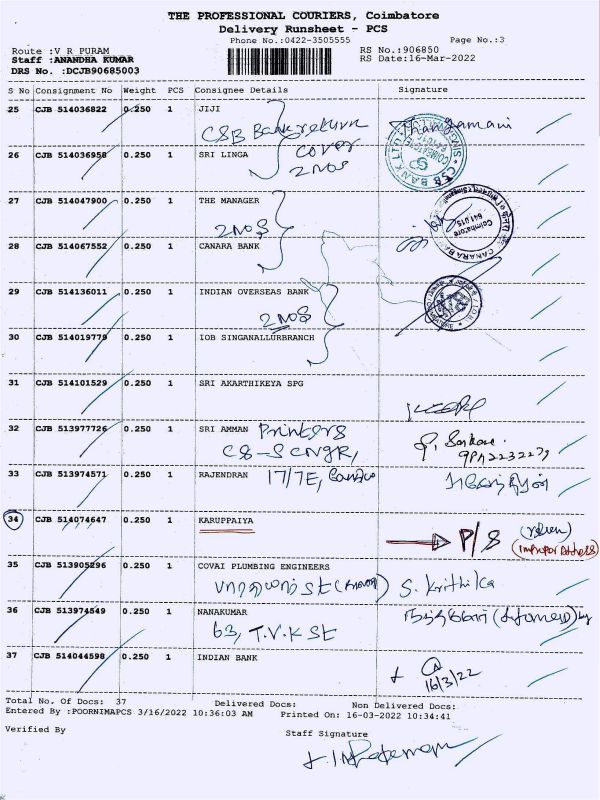 THE PROFESSIONAL COURIERS, Coimbatore
Delivery Runsheet - PCS
Phone No.:0422-3505555
Page No.:3
Route :V R PURAM
RS No.:906850
Staff :ANANDHA KUMAR
RS Date:16-Mar-2022
DRS No. :DCJB90685003
S No Consignment No Weight PCS Consignee Details Signature
25 CJB 514036822 0.250 1 JIJI
CSB Bank return cover 2 NOS
Thangamani
26 CJB 514036958 0.250 1 SRI LINGA
27 CJB 514047900 0.250 1 THE MANAGER
2 NOS
28 CJB 514067552 0.250 1 CANARA BANK
29 CJB 514136011 0.250 1 INDIAN OVERSEAS BANK
2 NOS
30 CJB 514019779 0.250 1 IOB SINGANALLURBRANCH
31 CJB 514101529 0.250 1 SRI AKARTHIKEYA SPG
32 CJB 513977726 0.250 1 SRI AMMAN Printers
33 CJB 513974571 0.250 1 RAJENDRAN 17/7E,
34 CJB 514074647 0.250 1 KARUPPAIYA
P/S
35 CJB 513905296 0.250 1 COVAI PLUMBING ENGINEERS
S. Krithika
36 CJB 513974549 0.250 1 NANAKUMAR
63, T.V.K St
37 CJB 514044598 0.250 1 INDIAN BANK
16/3/22
Total No. Of Docs: 37 Delivered Docs: Non Delivered Docs:
Entered By :POORNIMAPCS 3/16/2022 10:36:03 AM Printed On: 16-03-2022 10:34:41
Verified By
Staff Signature